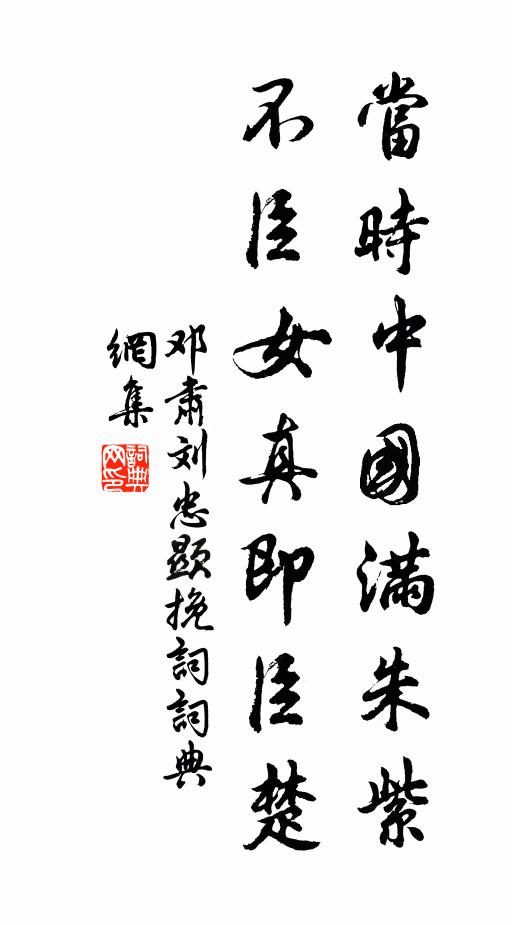 當時中國滿朱紫
不臣女真即臣楚
邓肅刘忠顯挽詞詞典
網集
詞典
网印